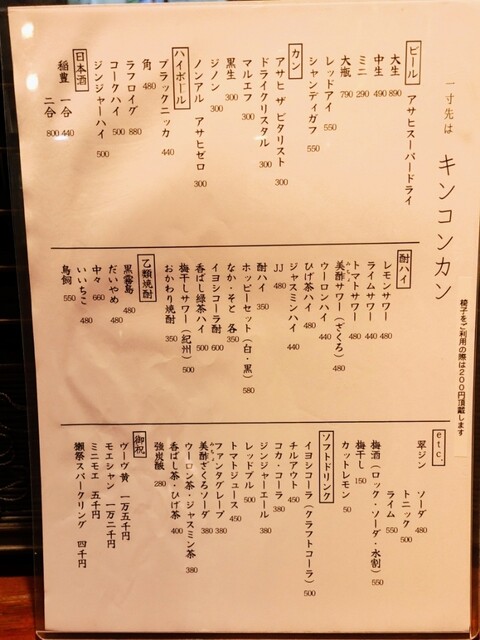 一寸先は キンコンカン
椅子をご利用の際は200円頂戴します
ビール アサヒスーパードライ
大生 890
中生 490
ミニ 290
大瓶 790
レッドアイ 550
シャンディガフ 550
カン
アサヒ ザ ビタリスト 300
ドライクリスタル 300
マルエフ 300
黒生 300
ジノン 300
ノンアル アサヒゼロ 300
ハイボール
ブラックニッカ 440
角 480
ラフロイグ 880
コークハイ 500
ジンジャーハイ 500
日本酒
稲豊 一合 440
二合 800
酎ハイ
レモンサワー 480
ライムサワー 440
トマトサワー 480
美酢サワー(ざくろ) 480
ウーロンハイ 440
ひげ茶ハイ 480
ジャスミンハイ 440
JJ 480
酎ハイ 350
ホッピーセット(白・黒) 580
なか・そと 各350
イヨシコーラ酎 600
香ばし緑茶ハイ 500
梅干しサワー(紀州) 500
おかわり焼酎 350
乙類焼酎
黒霧島 480
だいやめ 480
中々 660
いいちこ 480
鳥飼 550
etc.
翠ジン ソーダ 480
トニック 500
ライム 550
梅酒(ロック・ソーダ・水割) 550
梅干し 150
カットレモン 50
ソフトドリンク
イヨシコーラ(クラフトコーラ) 500
チルアウト 450
コカ・コーラ 380
ジンジャーエール 380
レッドブル 500
トマトジュース 450
ファンタグレープ 380
美酢ざくろソーダ 380
ウーロン茶・ジャスミン茶 380
香ばし茶・ひげ茶 400
強炭酸 280
御祝
ヴーヴ黄 一万五千円
モエシャン 一万二千円
ミニモエ 五千円
獺祭スパークリング 四千円